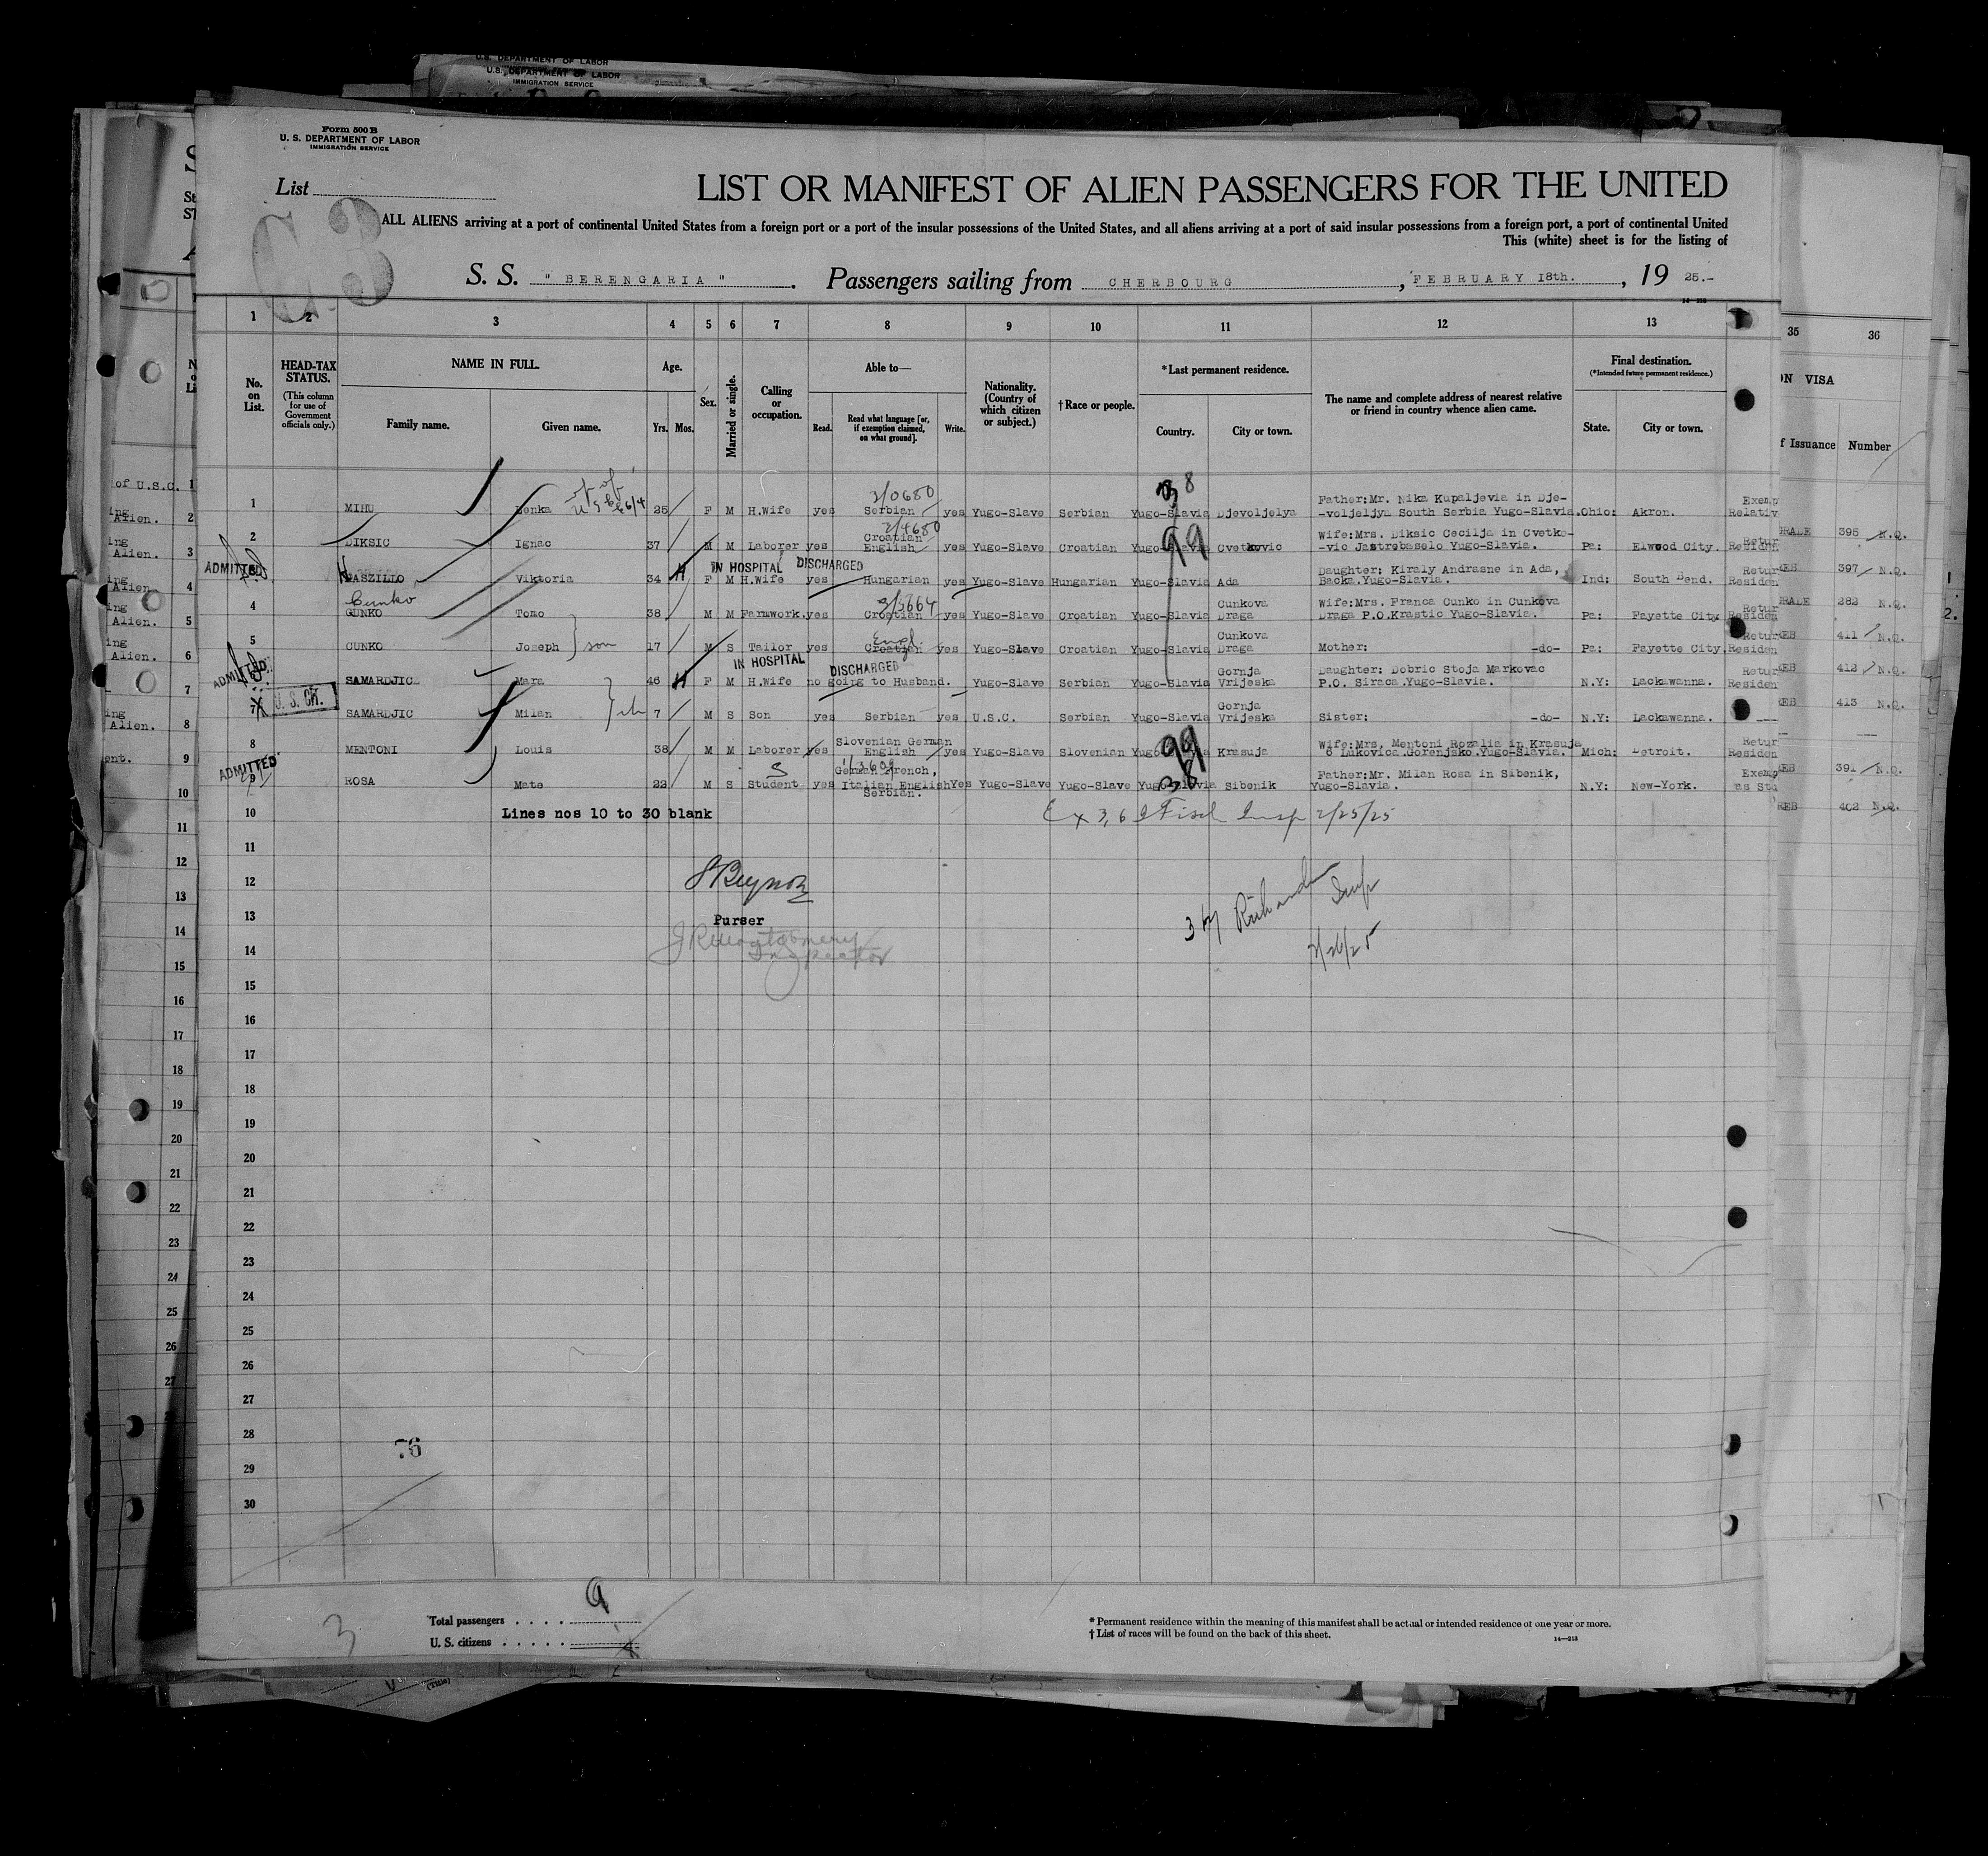 U.S. DEPARTMENT OF LABOR
U.S. DEPARTMENT OF LABOR
IMMIGRATION SERVICE
Form 500 B
U. S. DEPARTMENT OF LABOR
IMMIGRATION SERVICE
List
LIST OR MANIFEST OF ALIEN PASSENGERS FOR THE UNITED
ALL ALIENS arriving at a port of continental United States from a foreign port or a port of the insular possessions of the United States, and all aliens arriving at a port of said insular possessions from a foreign port, a port of continental United
This (white) sheet is for the listing of
S. S. "BERENGARIA". Passengers sailing from CHERBOURG, FEBRUARY 18th., 19 25.-
1 2 3 4 5 6 7 8 9 10 11 12 13 35 36
No. on List. HEAD-TAX STATUS. (This column for use of Government officials only.) NAME IN FULL. Family name. Given name. Age. Yrs. Mos. Sex. Married or single. Calling or occupation. Able to— Read. Read what language [or, if exemption claimed, on what ground]. Write. Nationality. (Country of which citizen or subject.) †Race or people. *Last permanent residence. Country. City or town. The name and complete address of nearest relative or friend in country whence alien came. Final destination. (*Intended future permanent residence.) State. City or town.
ON VISA
f Issuance Number
2/0680
38
1 MIHU Lenka 25 F M H.Wife yes Serbian yes Yugo-Slave Serbian Yugo-Slavia Djevoljelya Father:Mr. Nika Kupaljevia in Dje-
-voljeljya South Serbia Yugo-Slavia. Ohio: Akron. Exemp
Relativ
2/4680
99
2 DIKSIC Ignac 37 M M Laborer yes Croatian
English yes Yugo-Slave Croatian Yugo-Slavia Cvetkovic Wife:Mrs. Diksic Cecilja in Cvetko-
-vic Jastrebaselo Yugo-Slavia. Pa: Elwood City. Retur
Residen RADE 396 N.Q.
ADMITTED IN HOSPITAL DISCHARGED
3 LASZILLO Viktoria 34 F M H.Wife yes Hungarian yes Yugo-Slave Hungarian Yugo-Slavia Ada Daughter: Kiraly Andrasne in Ada,
Backa.Yugo-Slavia. Ind: South Bend. Retur
Residen 397 N.Q.
Cunko
2/3664
4 CUNKO Tomo 38 M M Farmwork. yes Croatian yes Yugo-Slave Croatian Yugo-Slavia Cunkova
Draga Wife:Mrs. Franca Cunko in Cunkova
Draga P.O.Krastic Yugo-Slavia. Pa: Fayette City. Retur
Residen RADE 282 N.Q.
Engl.
5 CUNKO Joseph son 17 M S Tailor yes Croatian yes Yugo-Slave Croatian Yugo-Slavia Cunkova
Draga Mother: -do- Pa: Fayette City. Retur
Residen 411 N.Q.
ADMITTED IN HOSPITAL DISCHARGED
SAMARDJIC Mara 46 F M H.Wife no going to Husband. Yugo-Slave Serbian Yugo-Slavia Gornja
Vrijeska Daughter: Dobric Stoja Markovac
P.O. Siraca.Yugo-Slavia. N.Y: Lackawanna. Retur
Residen 412 N.Q.
7 SAMARDJIC Milan 7 M S Son yes Serbian yes U.S.C. Serbian Yugo-Slavia Gornja
Vrijeska Sister: -do- N.Y: Lackawanna. 413 N.Q.
8 MENTONI Louis 38 M M Laborer yes Slovenian German
English yes Yugo-Slave Slovenian Yugo-Slavia Krasuja Wife:Mrs. Mentoni Rozalia in Krasuja
6 Lukovica.Gorenjsko.Yugo-Slavia. Mich: Detroit. Retur
Residen 391 N.Q.
ADMITTED
9 ROSA Mate 22 M S Student yes German French,
Italian English
Serbian. Yes Yugo-Slave Yugo-Slave Yugo-Slavia Sibenik Father:Mr. Milan Rosa in Sibenik,
Yugo-Slavia. N.Y: New-York. Exemp
as Stu 402 N.Q.
10 Lines nos 10 to 30 blank Ex 3,6 Insp 2/25/25
11
12
13 Purser
14 Inspector
15
16
17
18
19
20
21
22
23
24
25
26
27
28
76
29
30
Total passengers . . . . 9
U. S. citizens . . . . .
3
* Permanent residence within the meaning of this manifest shall be actual or intended residence of one year or more.
† List of races will be found on the back of this sheet.
14—213